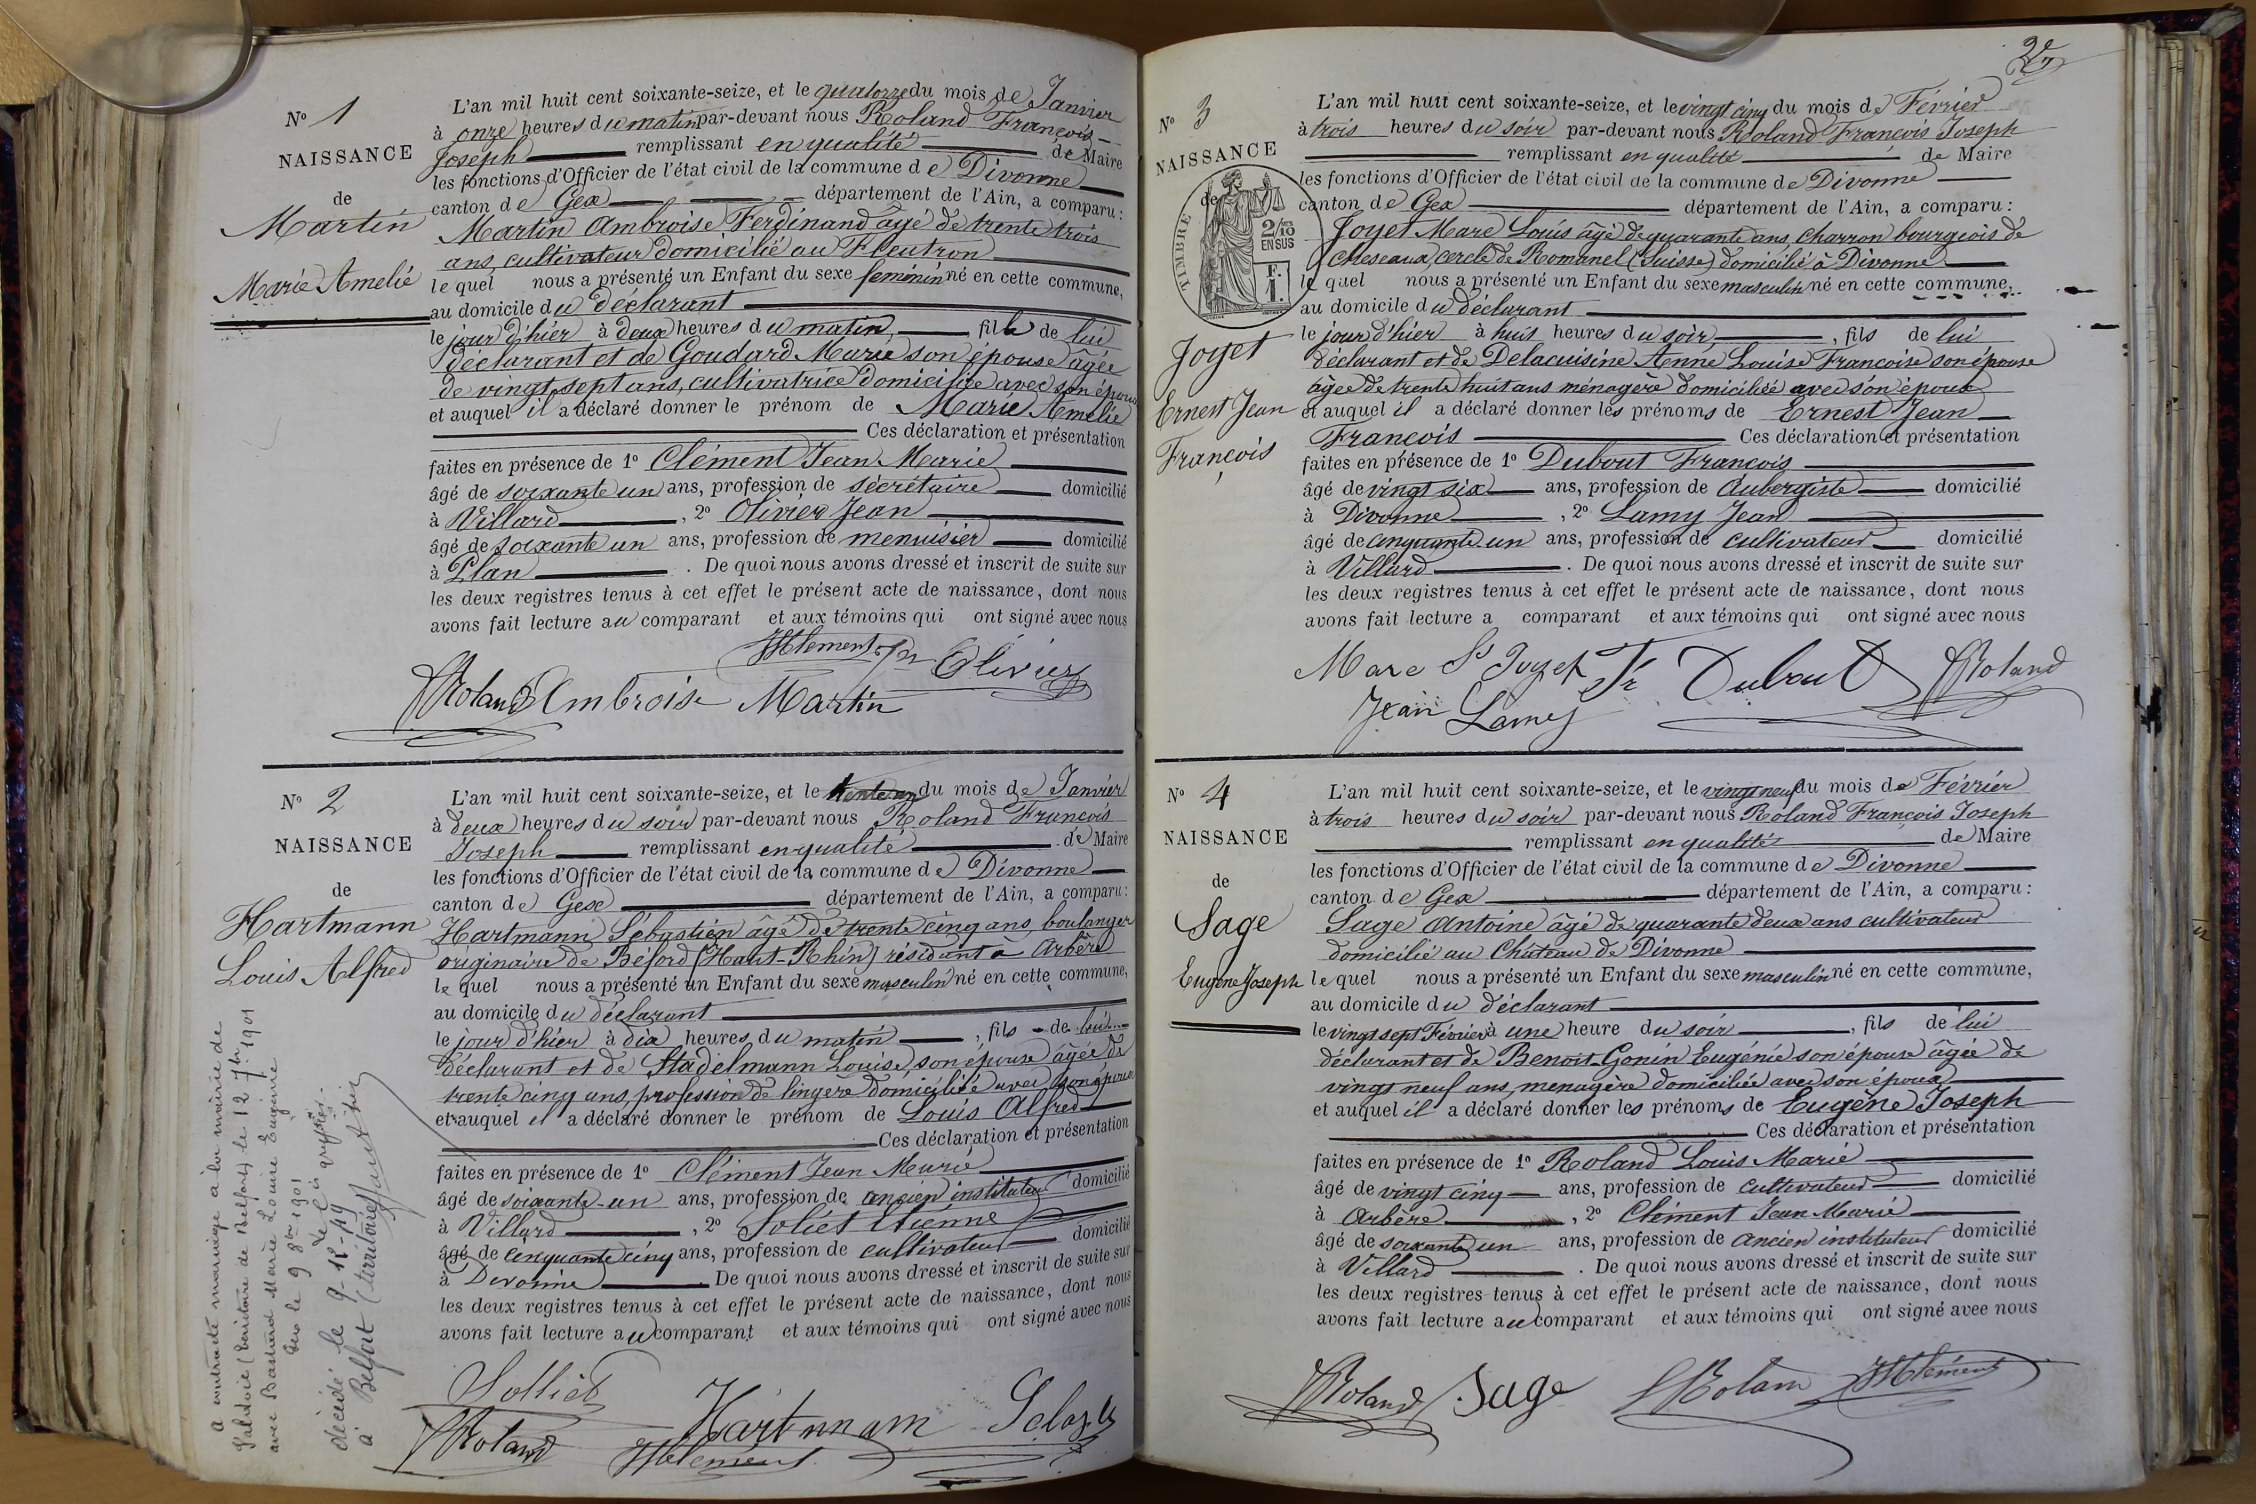 N° 1
NAISSANCE
de
Martin
Marie Amelie
L'an mil huit cent soixante-seize, et le quatorze du mois de Janvier
à onze heures du matin par-devant nous Roland François
Joseph remplissant en qualité de Maire
les fonctions d'Officier de l'état civil de la commune de Divonne
canton de Gex département de l'Ain, a comparu :
Martin Ambroise Ferdinand âgé de trente trois
ans, cultivateur domicilié au Fleutron
lequel nous a présenté un Enfant du sexe feminin né en cette commune,
au domicile du déclarant
le jour d'hier à deux heures du matin, fille de lui
déclarant et de Goudard Marie son épouse âgée
de vingt sept ans, cultivatrice domiciliée avec son époux
et auquel il a déclaré donner le prénom de Marie Amelie
Ces déclaration et présentation
faites en présence de 1° Clément Jean Marie
âgé de soixante un ans, profession de sécrétaire domicilié
à Villard, 2° Olivier Jean
âgé de soixante un ans, profession de menuisier domicilié
à Plan. De quoi nous avons dressé et inscrit de suite sur
les deux registres tenus à cet effet le présent acte de naissance, dont nous
avons fait lecture au comparant et aux témoins qui ont signé avec nous
JMClement Olivier
Roland Ambroise Martin
N° 2
NAISSANCE
de
Hartmann
Louis Alfred
a contracté mariage à la mairie de
Valdoie (territoire de Belfort) le 12 7bre 1901
avec Bastard Marie Louise Eugénie
le 9 8bre 1901
décédé le 9-12-49
à Belfort (territoire)
L'an mil huit cent soixante-seize, et le trente un du mois de Janvier
à deux heures du soir par-devant nous Roland François
Joseph remplissant en qualité de Maire
les fonctions d'Officier de l'état civil de la commune de Divonne
canton de Gex département de l'Ain, a comparu :
Hartmann Sébastien âgé de trente cinq ans, boulanger
originaire de Béford (Haut-Rhin) résidant à Arbère
lequel nous a présenté un Enfant du sexe masculin né en cette commune,
au domicile du déclarant
le jour d'hier à dix heures du matin, fils de lui
déclarant et de Stadelmann Louise, son épouse âgée de
trente cinq ans, profession de lingere domiciliée avec son époux
et auquel il a déclaré donner le prénom de Louis Alfred
Ces déclaration et présentation
faites en présence de 1° Clément Jean Marie
âgé de soixante-un ans, profession de ancien instituteur domicilié
à Villard, 2° Soliet Etienne
âgé de cinquante cinq ans, profession de cultivateur domicilié
à Divonne De quoi nous avons dressé et inscrit de suite sur
les deux registres tenus à cet effet le présent acte de naissance, dont nous
avons fait lecture au comparant et aux témoins qui ont signé avec nous
Solliet Hartmnam
Roland JMClement
2e
N° 3
NAISSANCE
de
TIMBRE
2/10
EN SUS
F.
1.
Joyet
Ernest Jean
François
L'an mil huit cent soixante-seize, et le vingt cinq du mois de Février
à trois heures du soir par-devant nous Roland François Joseph
remplissant en qualité de Maire
les fonctions d'Officier de l'état civil de la commune de Divonne
canton de Gex département de l'Ain, a comparu :
Joyet Marc Louis âgé de quarante ans, charron bourgeois de
Cheseaux, cercle de Romanel (Suisse) domicilié à Divonne
lequel nous a présenté un Enfant du sexe masculin né en cette commune,
au domicile du déclarant
le jour d'hier à huit heures du soir, fils de lui
déclarant et de Delacuisine Anne Louise Françoise son épouse
âgée de trente huit ans ménagère domiciliée avec son époux
et auquel il a déclaré donner les prénoms de Ernest Jean
François Ces déclaration et présentation
faites en présence de 1° Dubout François
âgé de vingt six ans, profession de Aubergiste domicilié
à Divonne, 2° Lamy Jean
âgé de cinquante un ans, profession de cultivateur domicilié
à Villard. De quoi nous avons dressé et inscrit de suite sur
les deux registres tenus à cet effet le présent acte de naissance, dont nous
avons fait lecture a comparant et aux témoins qui ont signé avec nous
Marc Ls Joyet Fr Dubout Roland
Jean Lamy
N° 4
NAISSANCE
de
Sage
Eugène Joseph
L'an mil huit cent soixante-seize, et le vingt neuf du mois de Février
à trois heures du soir par-devant nous Roland François Joseph
remplissant en qualité de Maire
les fonctions d'Officier de l'état civil de la commune de Divonne
canton de Gex département de l'Ain, a comparu :
Sage Antoine âgé de quarante deux ans cultivateur
domicilié au Château de Divonne
lequel nous a présenté un Enfant du sexe masculin né en cette commune,
au domicile du déclarant
le vingt sept Février à une heure du soir, fils de lui
déclarant et de Benoit-Gonin Eugénie son épouse âgée de
vingt neuf ans, menagère domiciliée avec son époux
et auquel il a déclaré donner les prénoms de Eugène Joseph
Ces déclaration et présentation
faites en présence de 1° Roland Louis Marie
âgé de vingt cinq ans, profession de cultivateur domicilié
à Arbère, 2° Clément Jean Marie
âgé de soixante un ans, profession de ancien instituteur domicilié
à Villard. De quoi nous avons dressé et inscrit de suite sur
les deux registres tenus à cet effet le présent acte de naissance, dont nous
avons fait lecture au comparant et aux témoins qui ont signé avec nous
Roland Sage LRolan JMClément